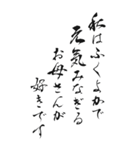 私はふくよかで
元気みなぎる
お母さんが
好きです